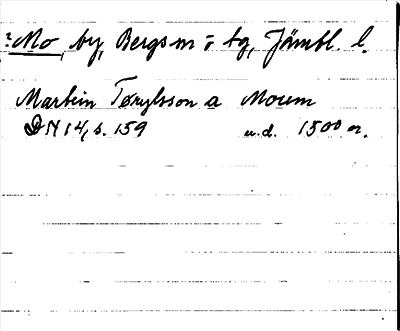 ? Mo, by, Bergs sn o tg, Jämtl. l.
Martein Tørylsson a Moum
DN 14, s. 159 u.d. 1500 a.